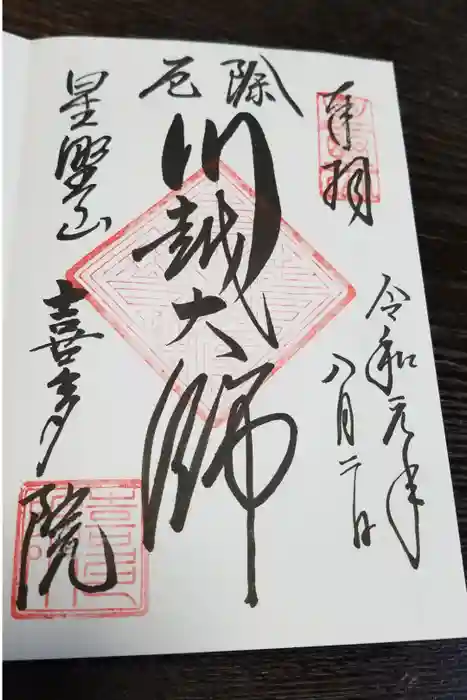 奉拝
令和元年
八月二日
厄除
川越大師
星野山
喜多院